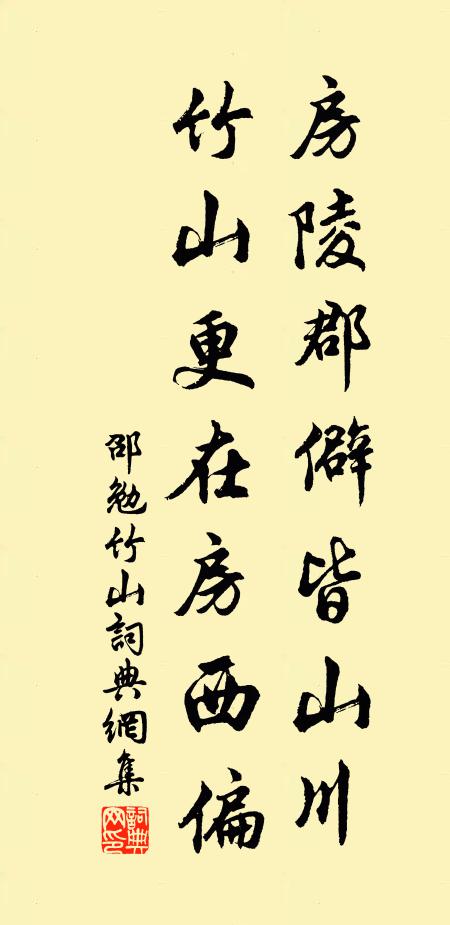 房陵郡僻皆山川
竹山更在房西偏
邵勉竹山詞典網集
詞典網印